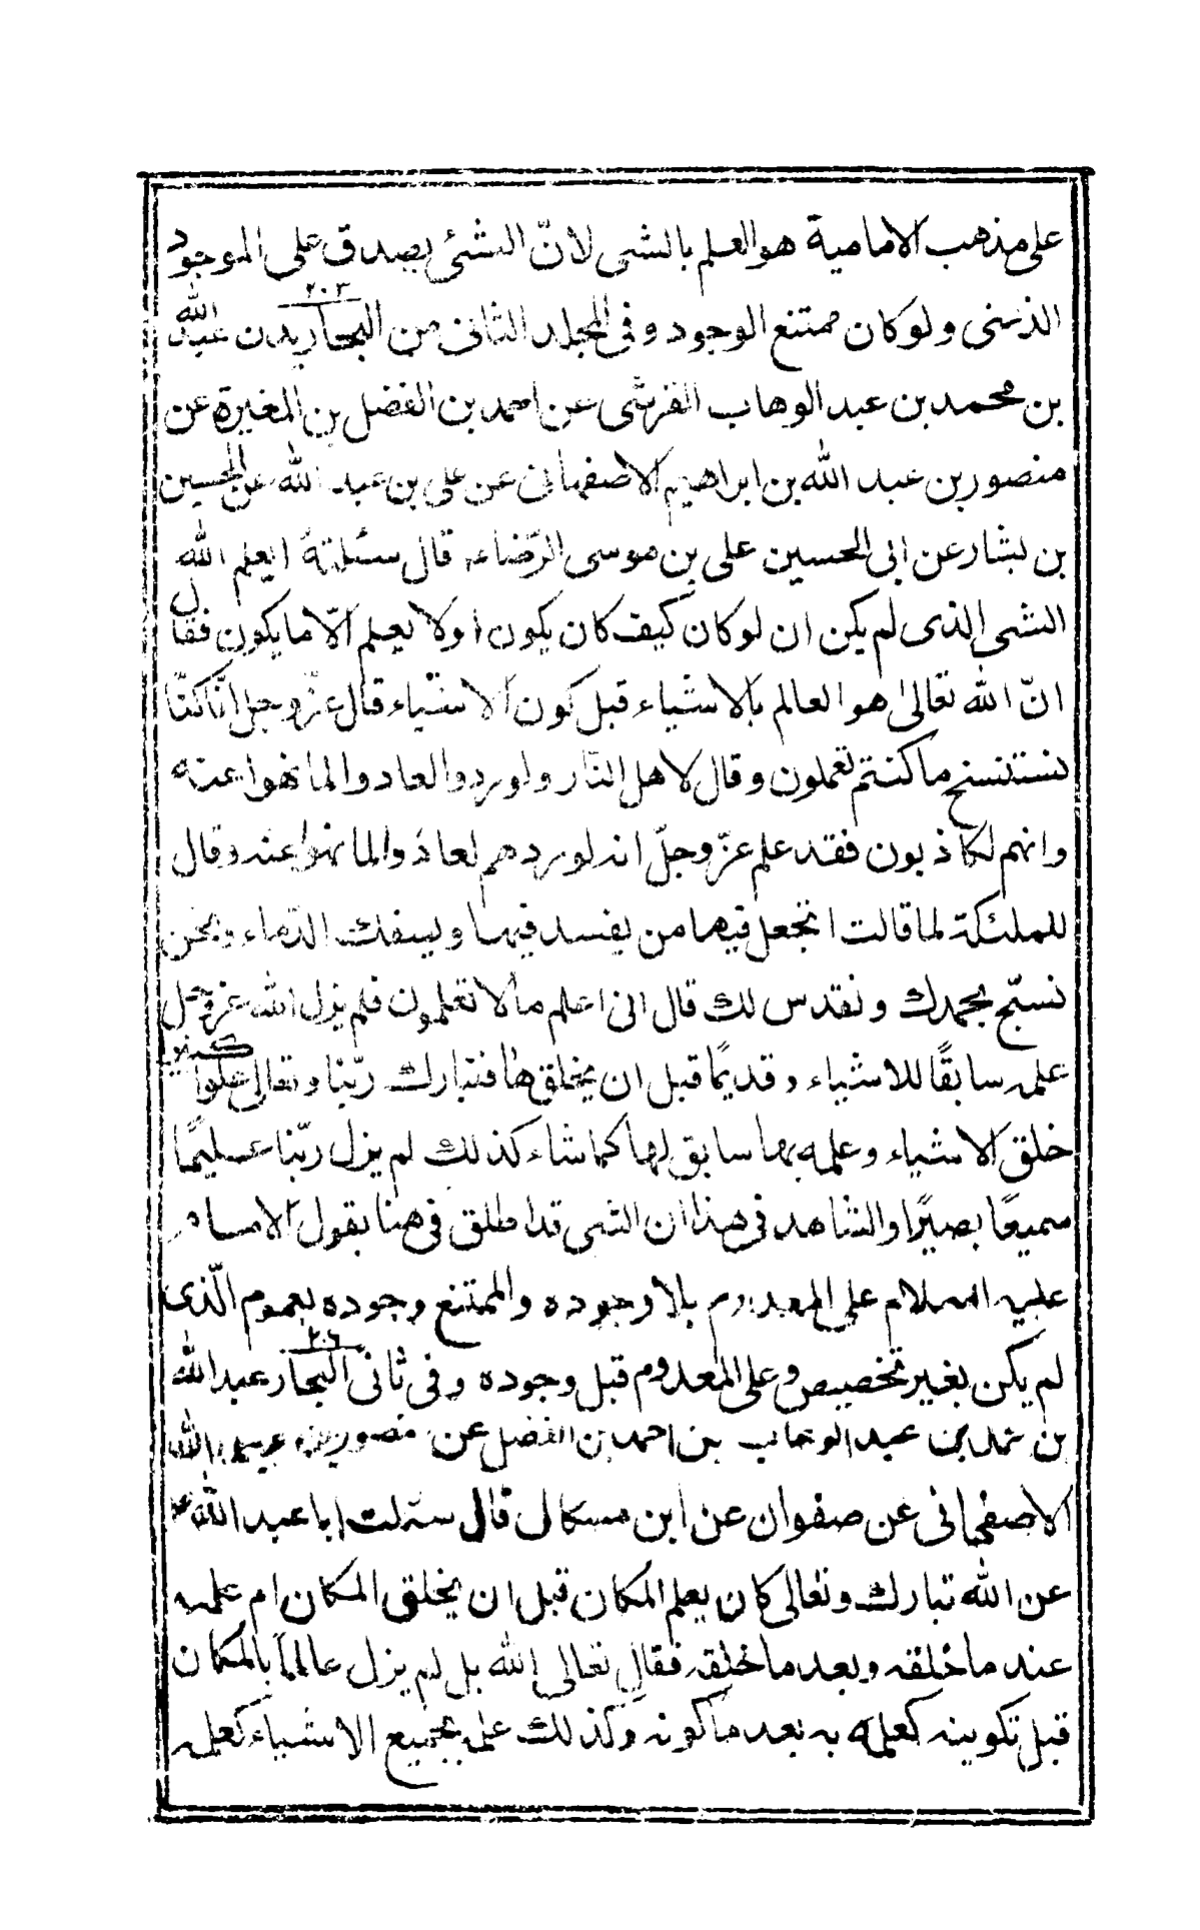 على مذهب الامامية هو العلم بالشى لانّ الشئ يصدق على الموجود
الذهنى ولو كان ممتنع الوجود وفى المجلد الثانى من البحار ٢٠٣ عبد الله
بن محمد بن عبد الوهاب القرشى عن احمد بن الفضل بن المغيرة عن
منصور بن عبد الله بن ابراهيم الاصفهانى عن على بن عبد الله عن الحسين
بن بشار عن ابى الحسين على بن موسى الرّضاء قال سئلته ايعلم الله
الشى الذى لم يكن ان لو كان كيف كان يكون او لا يعلم الّا ما يكون فقال
انّ الله تعالى هو العالم بالاشياء قبل كون الاشياء قال عزّ وجل انّا كنّا
نستنسخ ما كنتم تعملون وقال لاهل النّار ولو ردوا لعادوا لما نهوا عنه
وانهم لكاذبون فقد علم عزّ وجلّ انه لو ردهم لعادوا لما نهوا عنه وقال
للملئكة لما قالت اتجعل فيها من يفسد فيها ويسفك الدّماء ونحن
نسبّح بحمدك ونقدس لك قال انى اعلم ما لا تعلمون فلم يزل الله عز وجل
علمه سابقًا للاشياء وقديمًا قبل ان يخلقها فتبارك ربّنا وتعالى علوا كبيرا
خلق الاشياء وعلمه بها سابق لها كما شاء كذلك لم يزل ربّنا عليمًا
سميعًا بصيرًا والشاهد فى هذا ان الشى قد اطلق فى هنا بقول الامام
عليه السلام على المعدوم بلا وجوده والممتنع وجوده بعموم الّذى
لم يكن بغير تخصيص وعلى المعدوم قبل وجوده وفى ثانى البحار ٢٠٦ عبد الله
بن محمد بن عبد الوهاب بن احمد بن الفضل عن منصور بن عبد الله
الاصفهانى عن صفوان عن ابن مسكان قال سئلت ابا عبد الله ع
عن الله تبارك وتعالى كان يعلم المكان قبل ان يخلق المكان ام علمه
عند ما خلقه وبعد ما خلقه فقال تعالى الله بل لم يزل عالماً بالمكان
قبل تكوينه كعلمه به بعد ما كونه وكذلك علمه بجميع الاشياء كعلمه